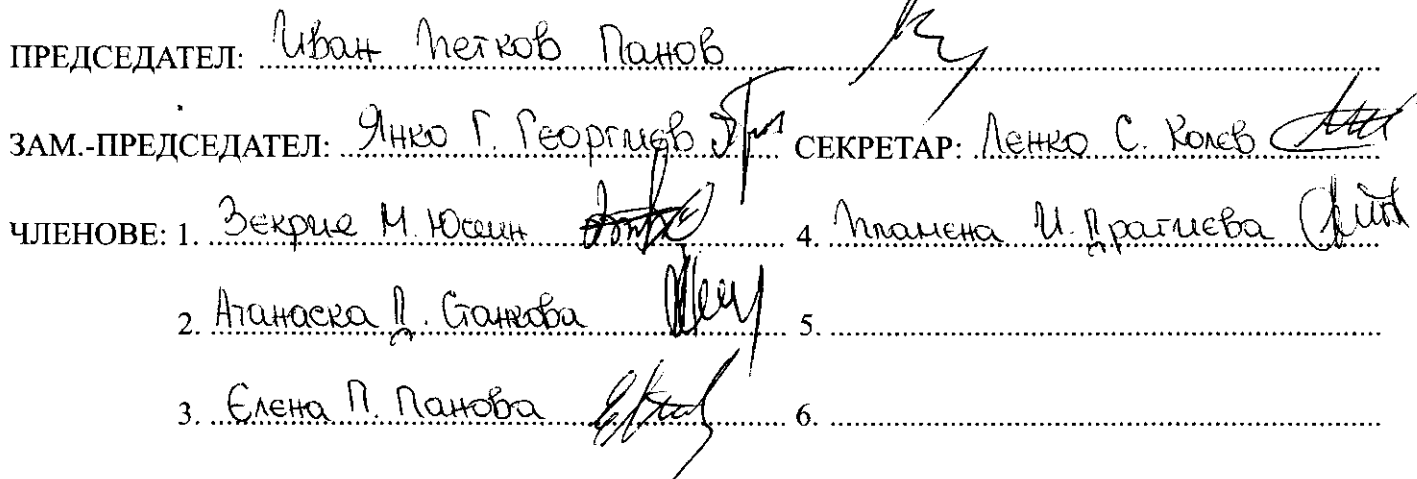 ПРЕДСЕДАТЕЛ: Иван Петков Панов
ЗАМ.-ПРЕДСЕДАТЕЛ: Янко Г. Георгиев СЕКРЕТАР: Ленко С. Колев
ЧЛЕНОВЕ: 1. Зекрие М. Юсеин 4. Пламена И. Драгиева
2. Атанаска Д. Станкова 5.
3. Елена П. Панова 6.